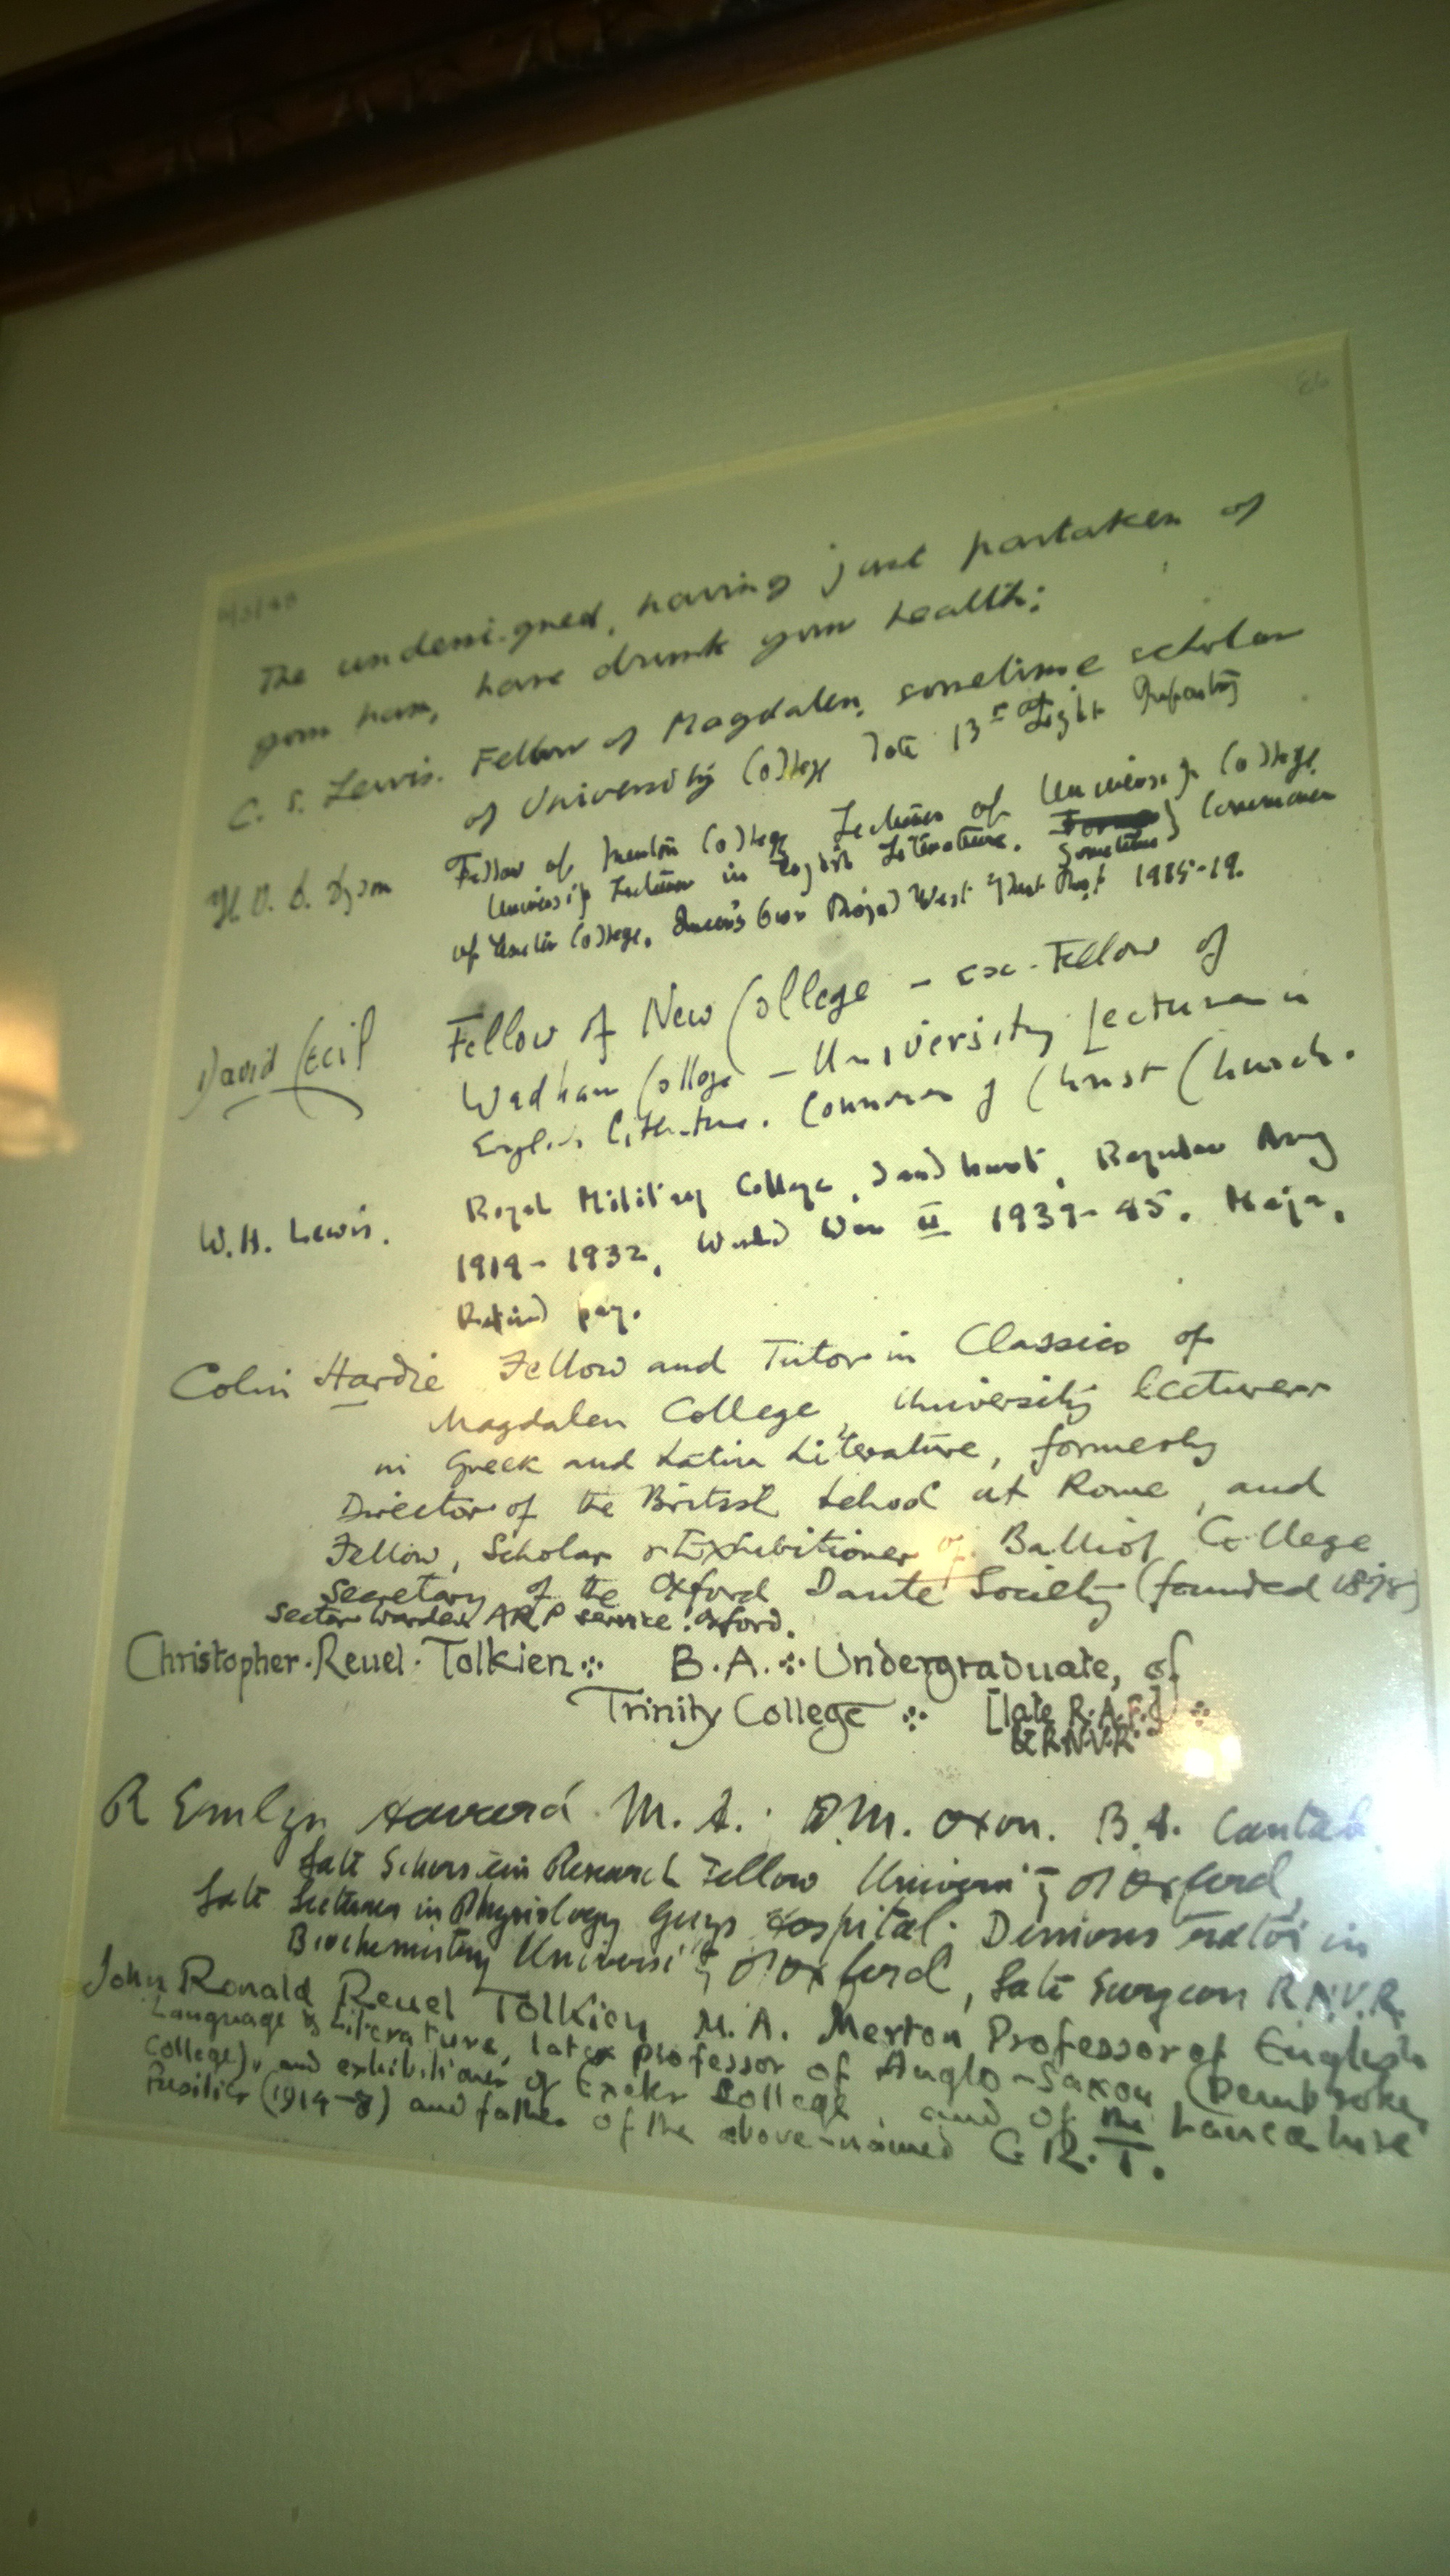 86
The undersigned, having just partaken of
your ham, have drunk your health:
C. S. Lewis. Fellow of Magdalen, sometime scholar
of University College late 13th Light Infantry
H. V. D. Dyson Fellow of Merton College Lecturer of University College
University Lecturer in English Literature. Sometime Commoner
of Exeter College. Queen's Own Royal West Kent Regt 1915-19.
David Cecil Fellow of New College - ex-Fellow of
Wadham College - University Lecturer in
English Literature. Commoner of Christ Church.
W.H. Lewis. Royal Military College, Sandhurst, Regular Army
1914-1932, World War II 1939-45. Major,
Retired pay.
Colin Hardie Fellow and Tutor in Classics of
Magdalen College, University lecturer
in Greek and Latin Literature, formerly
Director of the British School at Rome, and
Fellow, Scholar & Exhibitioner of Balliol College
Secretary of the Oxford Dante Society (founded 1878)
Sector Warden ARP service Oxford.
Christopher·Reuel·Tolkien B.A. Undergraduate, of
Trinity College [late R.A.F.]
& R.N.V.R.
R Emlyn Havard M.A.: D.M. Oxon. B.A. Cantab.
Late Research Fellow University of Oxford,
Late Lecturer in Physiology Guys Hospital: Demonstrator in
Biochemistry University of Oxford, Late Surgeon R.N.V.R.
John Ronald Reuel Tolkien M.A. Merton Professor of English
Language & Literature, late professor of Anglo-Saxon (Pembroke
College), and exhibitioner of Exeter College, and of the Lancashire
Fusiliers (1914-8) and father of the above-named C.R.T.